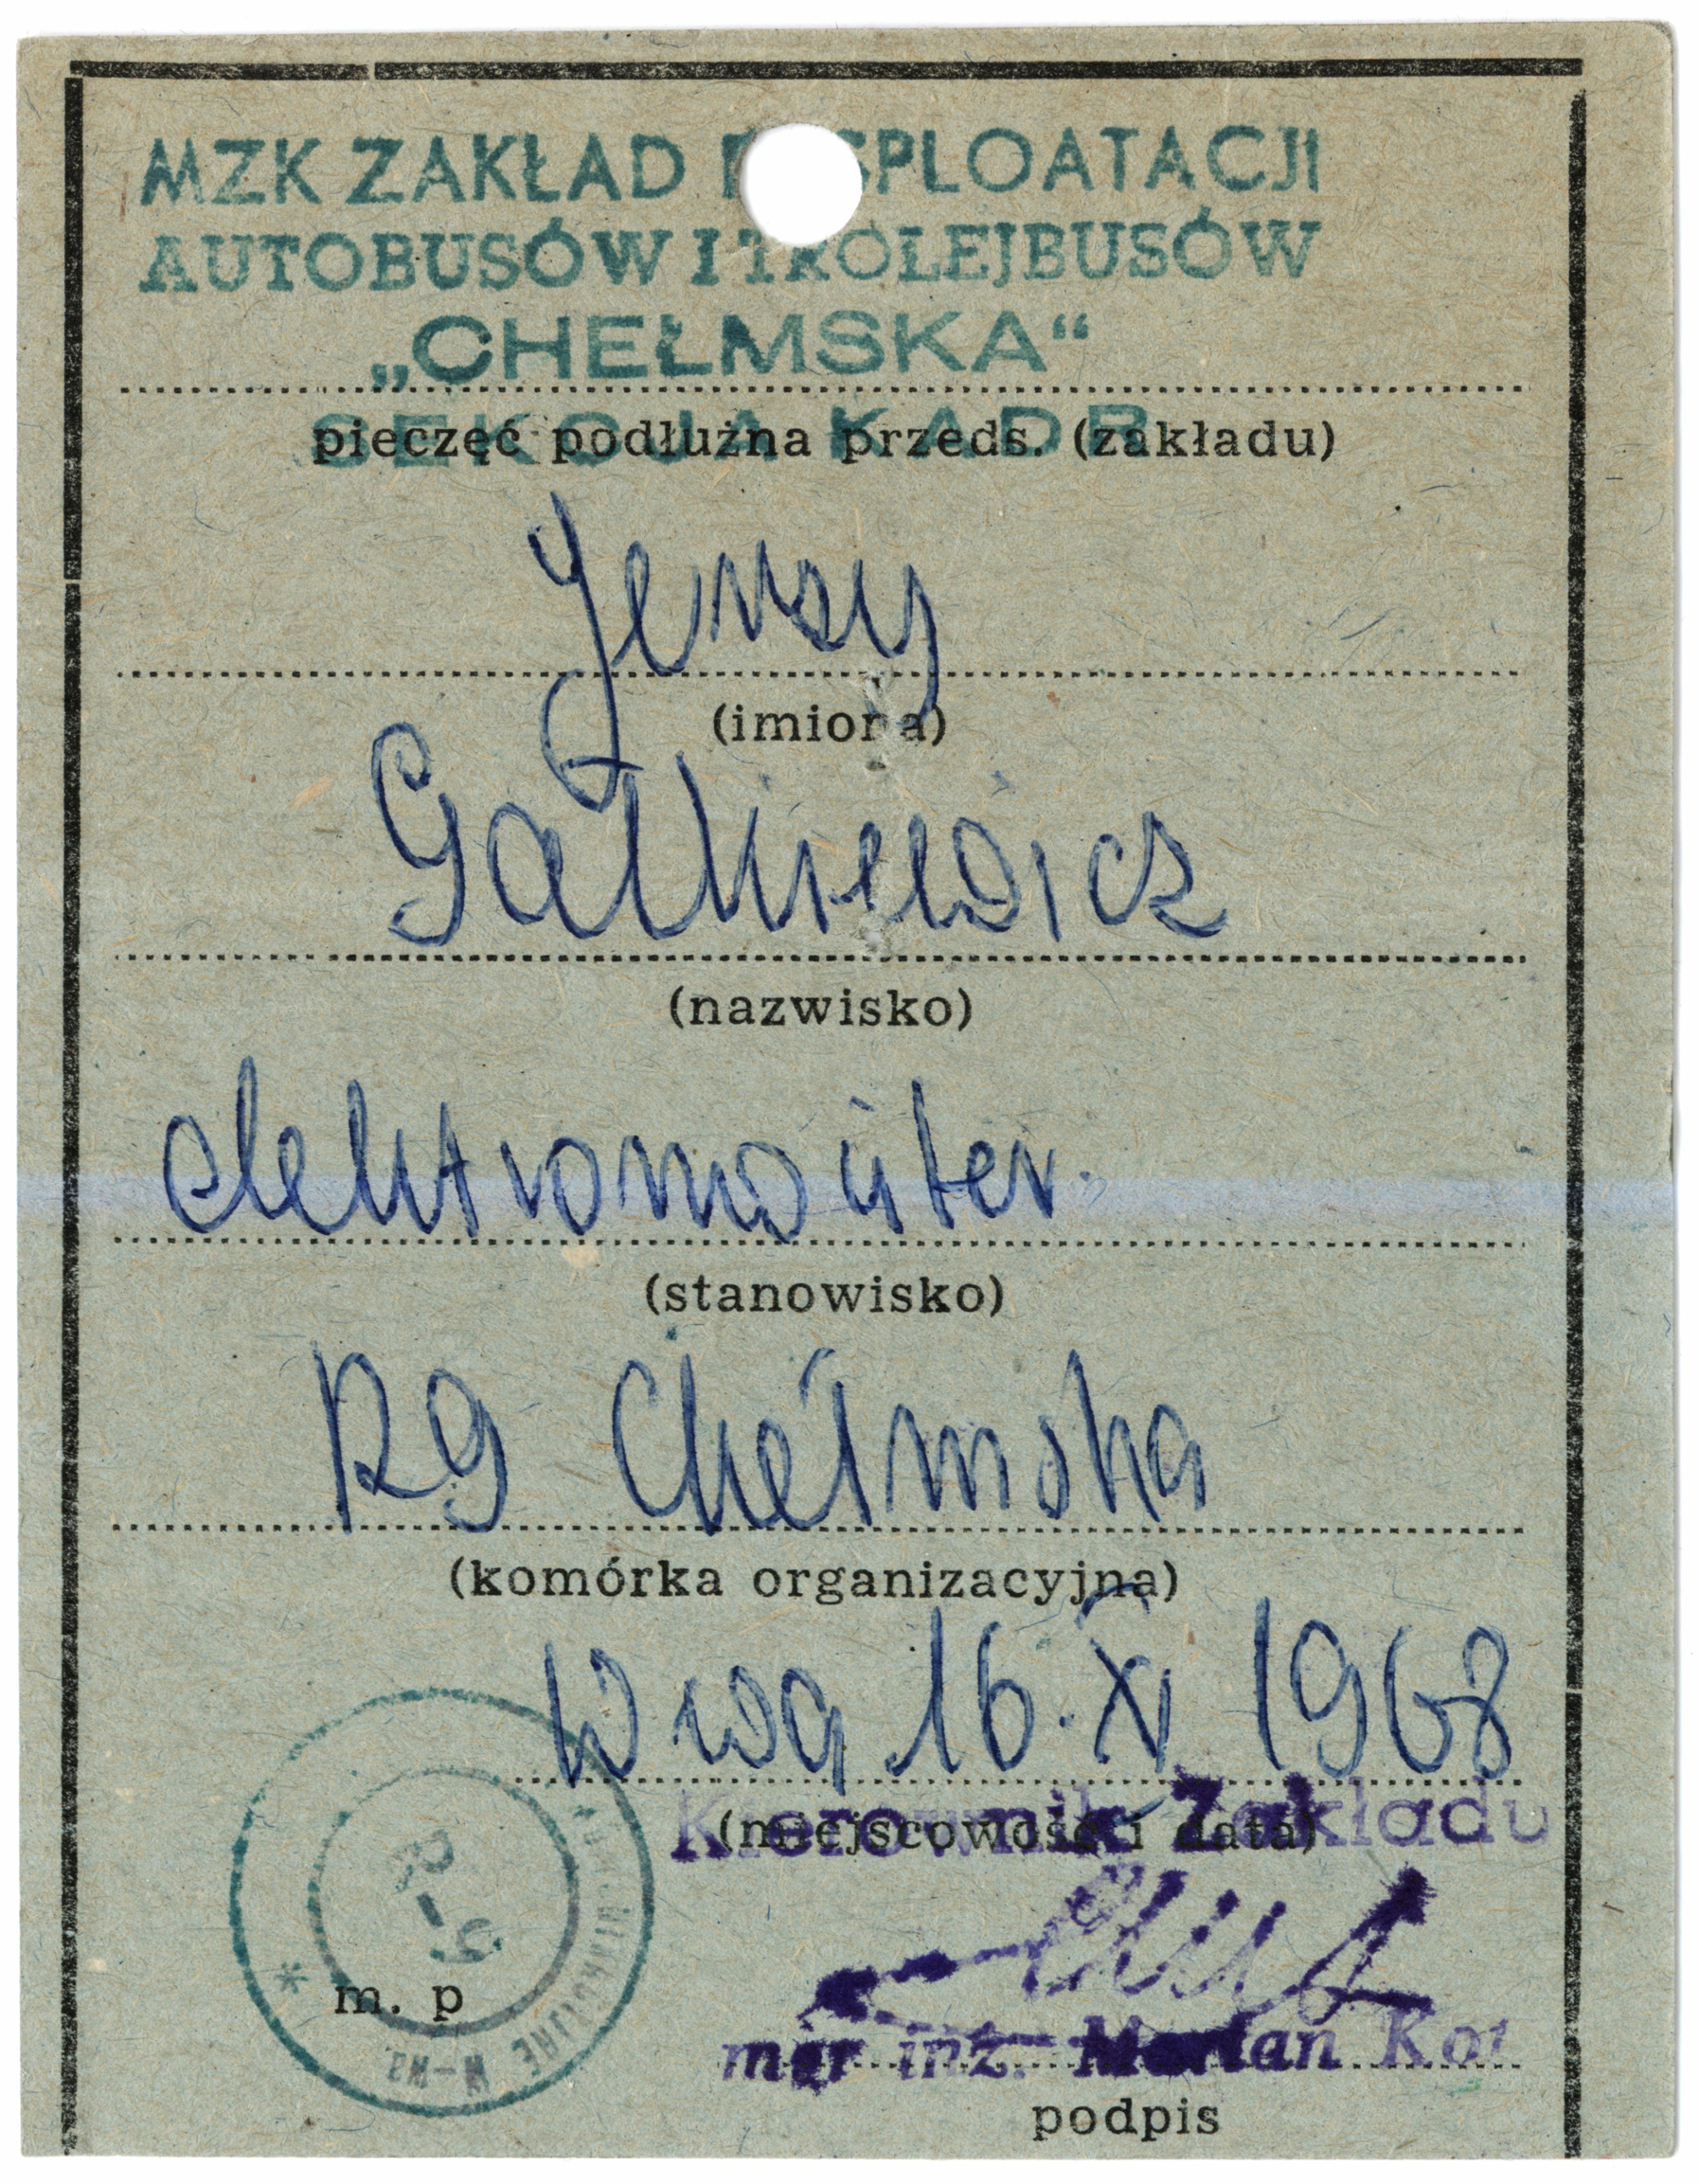 MZK ZAKŁAD EKSPLOATACJI
AUTOBUSÓW I TROLEJBUSÓW
„CHEŁMSKA“
SEKCJA KADR
pieczęć podłużna przeds. (zakładu)
Jerzy
(imiona)
Gałkiewicz
(nazwisko)
elektromonter.
(stanowisko)
R9 Chełmska
(komórka organizacyjna)
W-wa 16.XI 1968
(miejscowość i data)
Kierownik Zakładu
m. p
mgr inż. Marian Kot
podpis